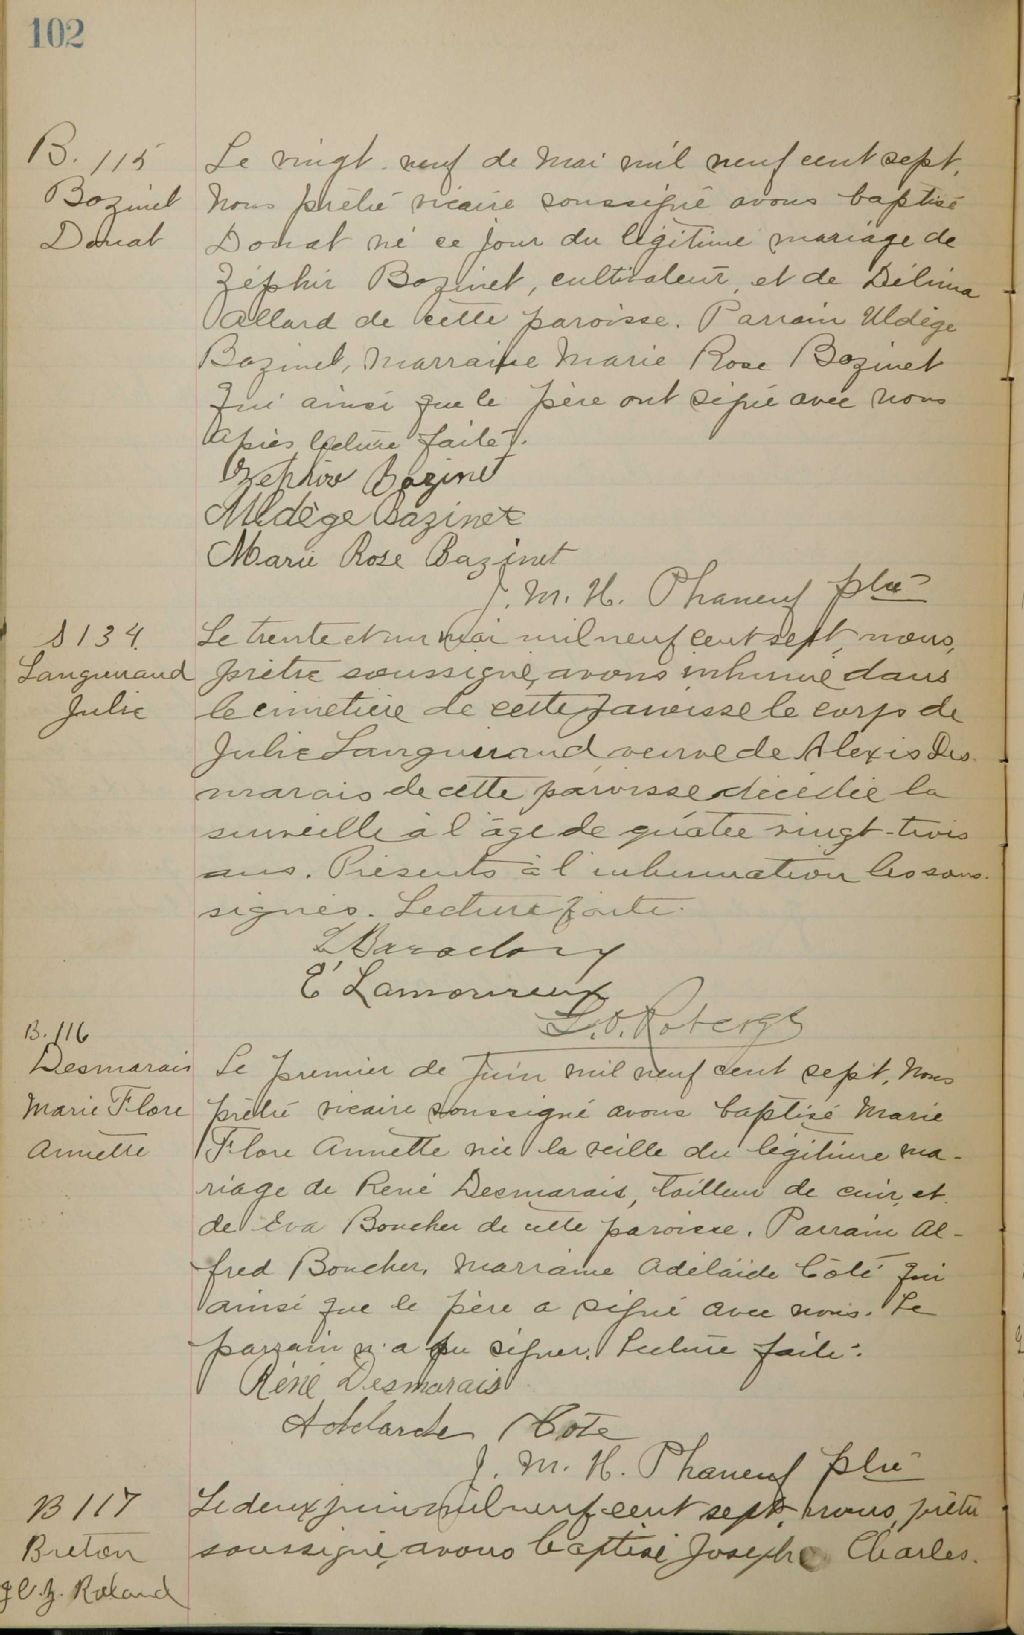 102
B. 115
Bazinet
Donat
Le vingt-neuf de Mai mil neuf cent sept,
Nous prêtre vicaire soussigné avons baptisé
Donat né ce jour du légitime mariage de
Zéphir Bazinet, cultivateur, et de Délima
Allard de cette paroisse. Parrain Uldège
Bazinet, Marraine Marie Rose Bazinet
qui ainsi que le père ont signé avec nous
après lecture faite.
Zéphir Bazinet
Uldège Bazinet
Marie Rose Bazinet
J. M. H. Phaneuf ptre
S 134.
Languirand
Julie
Le trente et un mai mil neuf cent sept, nous,
prêtre soussigné, avons inhumé dans
le cimetière de cette paroisse le corps de
Julie Languirand veuve de Alexis Des-
marais de cette paroisse décédée la
surveille à l'âge de quatre vingt-trois
ans. Présents à l'inhumation les sous-
signés. Lecture faite.
E Lamoureux
L. O. Roberge
B. 116
Desmarais
Marie Flore
Annette
Le premier de Juin mil neuf cent sept, Nous
prêtre vicaire soussigné avons baptisé Marie
Flore Annette née la veille du légitime ma-
riage de René Desmarais, tailleur de cuir, et
de Eva Boucher de cette paroisse. Parrain Al-
fred Boucher, Marraine Adélaïde Côté qui
ainsi que le père a signé avec nous. Le
parrain n'a pu signer. Lecture faite.
Réné Desmarais
Adelaide Cote
J. M. H. Phaneuf ptre
B 117
Breton
J. C. Z. Roland
Le deux juin mil neuf cent sept, nous, prêtre
soussigné, avons baptisé Joseph Charles.